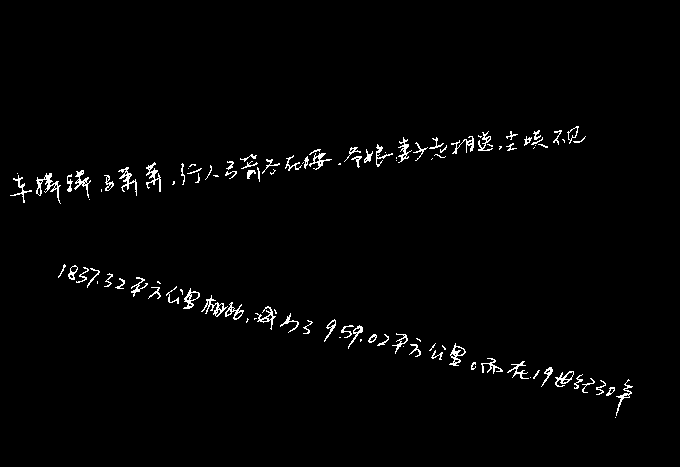 车辚辚,马萧萧,行人弓箭各在腰.爷娘妻子走相送,尘埃不见
1837.32平方公里相比,减少了959.02平方公里。而在19世纪30年